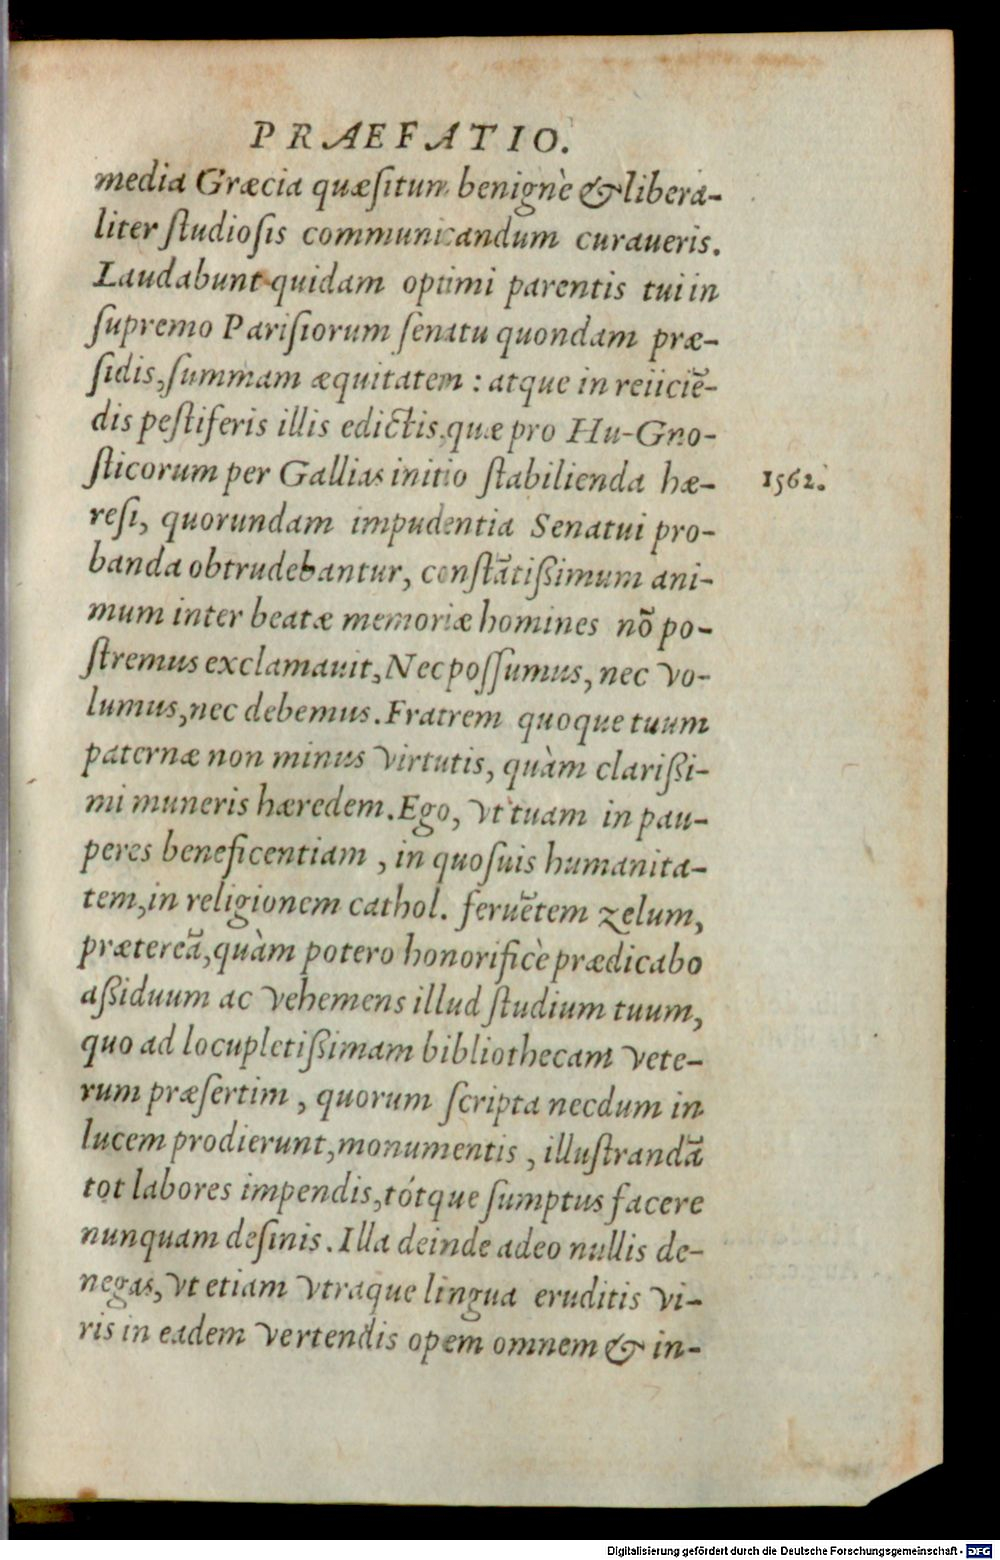 PRAEFATIO.
media Græcia quæſitum benignè & libera-
liter ſtudioſis communicandum curaueris.
Laudabunt quidam optimi parentis tui in
ſupremo Pariſiorum ſenatu quondam præ-
ſidis, ſummam æquitatem : atque in reiiciē-
dis peſtiferis illis edictis, quæ pro Hu-Gno-
ſticorum per Gallias initio ſtabilienda hæ-
1562.
reſi, quorundam impudentia Senatui pro-
banda obtrudebantur, conſtātißimum ani-
mum inter beatæ memoriæ homines nō po-
ſtremus exclamauit, Nec poſſumus, nec vo-
lumus, nec debemus. Fratrem quoque tuum
paternæ non minus virtutis, quàm clarißi-
mi muneris hæredem. Ego, vt tuam in pau-
peres beneficentiam, in quoſuis humanita-
tem, in religionem cathol. feruētem zelum,
prætereā, quàm potero honorificè prædicabo
aßiduum ac vehemens illud ſtudium tuum,
quo ad locupletißimam bibliothecam vete-
rum præſertim, quorum ſcripta necdum in
lucem prodierunt, monumentis, illuſtrandā
tot labores impendis, tótque ſumptus facere
nunquam deſinis. Illa deinde adeo nullis de-
negas, vt etiam vtraque lingua eruditis vi-
ris in eadem vertendis opem omnem & in-
Digitalisierung gefördert durch die Deutsche Forschungsgemeinschaft - DFG